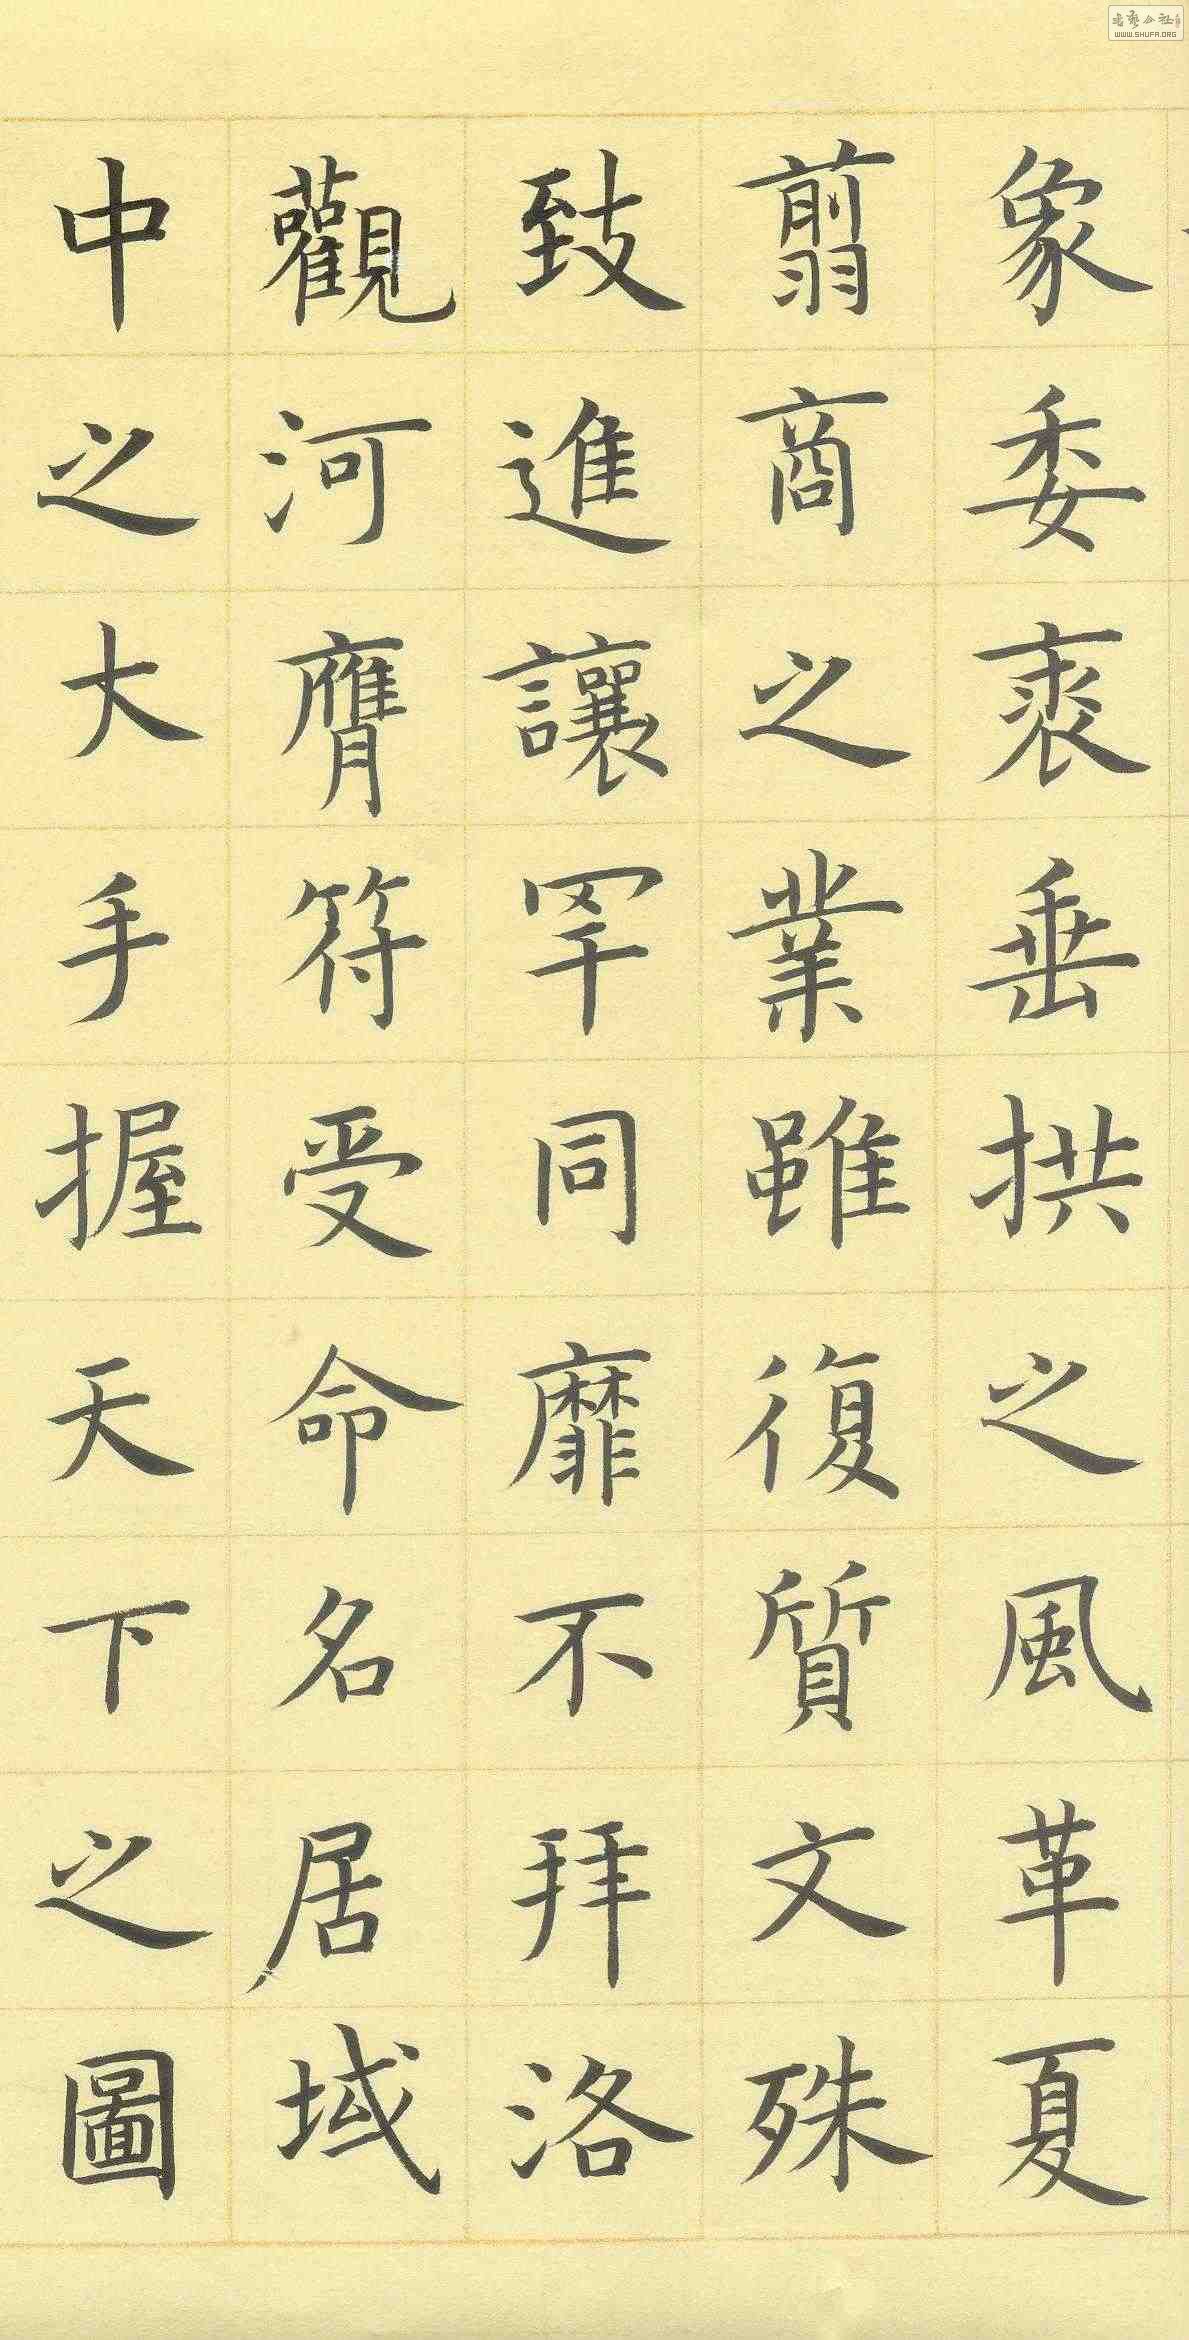 象委裘垂拱之風革夏
翦商之業雖復質文殊
致進讓罕同靡不拜洛
觀河膺符受命名居域
中之大手握天下之圖
書藝公社
WWW.SHUFA.ORG